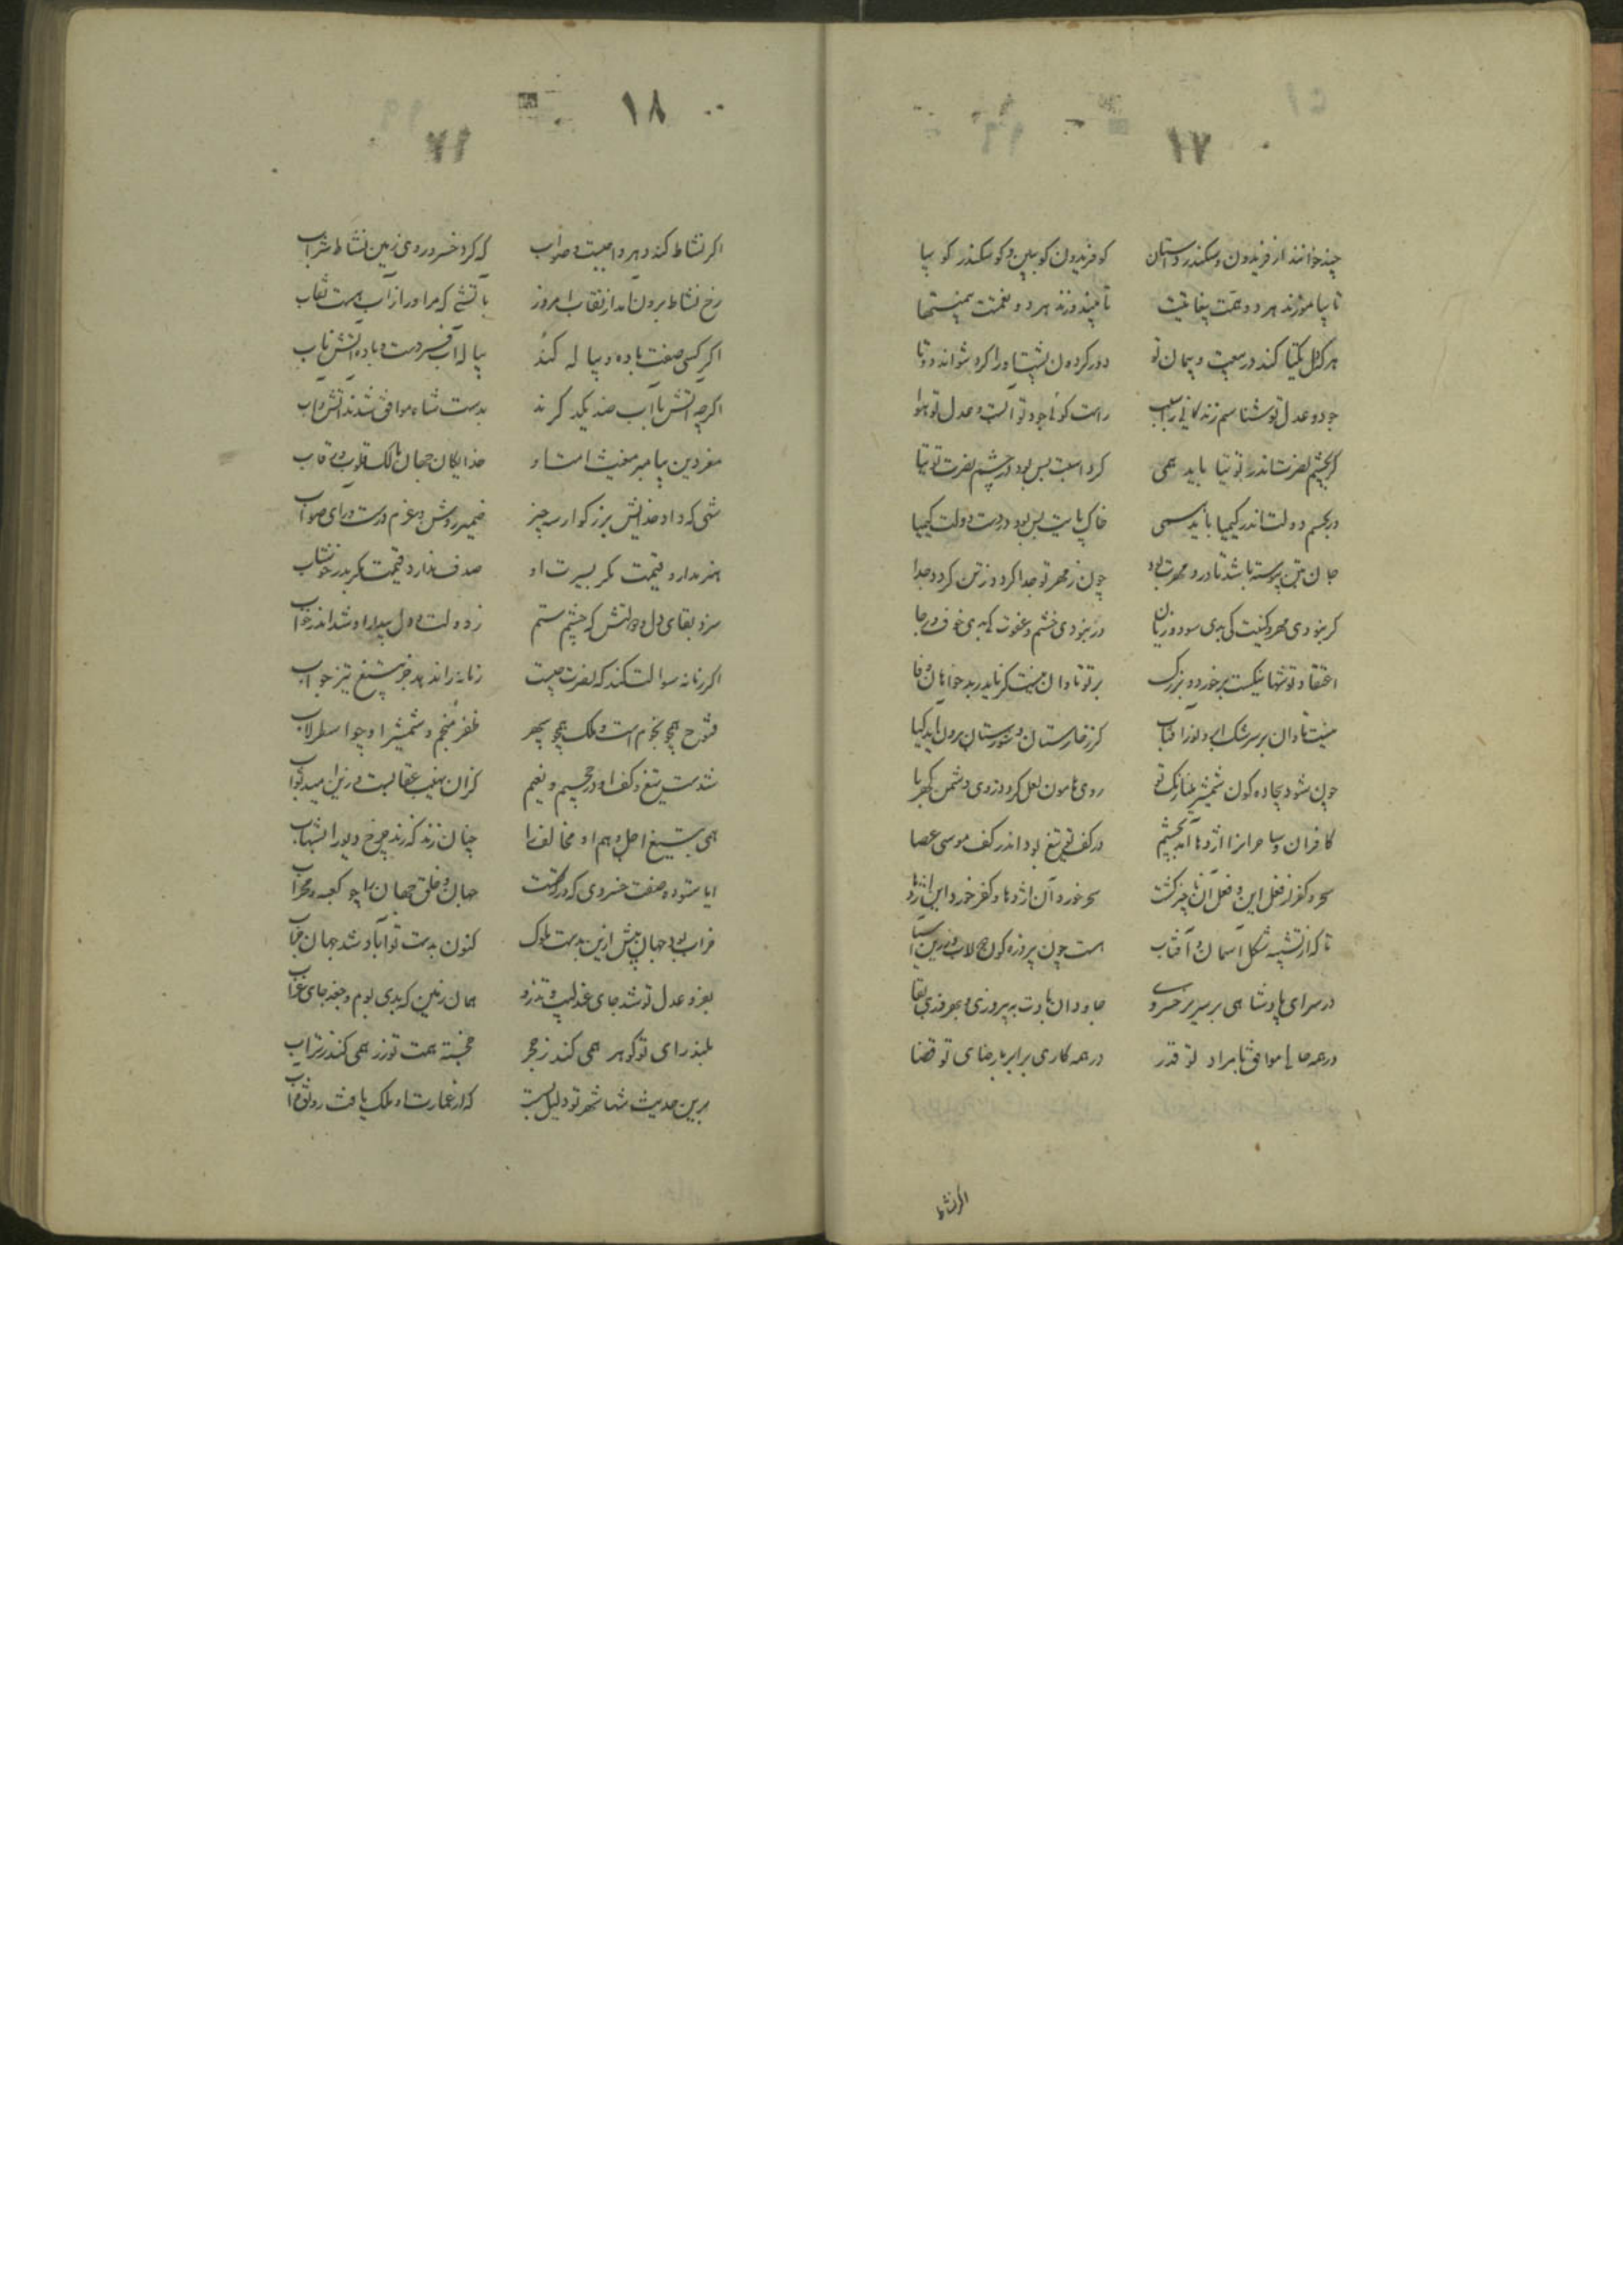 ۱۷
چند خوانند از فریدون و سکندر داستان کو فریدون کو ببین و کو سکندر کو بیا
تا بیاموزند هر دو همت بیغایتت تا ببیندوزند هر دو نعمت بیمنتها
هر که دل یکتا کند در بیعت و پیمان تو دور گردون پشت او را کرد نتواند دوتا
جود و عدل تو شناسم زندگانی را سبب راست گوئی جود تو آبست و عدل تو هوا
گر بچشم نصرت اندر توتیا باید همی گرد اسبت بس بود در چشم نصرت توتیا
در بجسم دولت اندر کیمیا باید همی خاک پایت بس بود در دست دولت کیمیا
جان بتن پیوسته باشد تا درو مهرت بود چون ز مهر تو جدا گردد ز تن گردد جدا
گر نبودی مهر و کینت کی بدی سود و زیان ور نبودی خشم و عفوت کی بدی خوف و رجا
اعتقاد تو شها نیکست بر خورد و بزرگ بر تو تاوان نیست گر ناید ز بدخواهان وفا
نیست تاوان بر سرشک ابر و نور آفتاب گر ز خارستان و شورستان برون ناید گیا
چون شود بیجاده گون شمشیر مینارنگ تو روی هامون لعل گردد روی دشمن کهربا
کافران و ساحرانرا اژدها آید بچشم در کف تو تیغ بود اندر کف موسی عصا
سحر و کفر از فعل این و فعل آن ناچیز گشت سحر خورد آن اژدها و کفر خورد این اژدها
تا که از تشبیه شکل آسمان و آفتاب هست چون پیروزه گون دولاب و زرین آسیا
در سرای پادشاهی بر سریر خسروی جاودان بادت به پیروزی و بهروزی بقا
در همه حالها موافق با مراد تو قدر در همه کاری برابر با رضای تو قضا
اگر نشاط
۱۸
۷۱
اگر نشاط کند دهر واجبست و صواب که کرد خسرو روی زمین نشاط شراب
رخ نشاط برون آمد از نقاب امروز باتشی که مر او را ز آب هست نقاب
اگر کسی صفت باده و پیاله کند پیاله آب فسردست و باده آتش ناب
اگرچه آتش با آب ضد یکدگرند بدست شاه موافق شدند آتش و آب
معز دین پیامبر مغیث امت او خدایگان جهان مالک قلوب و رقاب
شهی که داد خدایش بزرگوار سه چیز ضمیر روشن و عزم درست و رای صواب
هنر ندارد قیمت مگر بسیرت او صدف ندارد قیمت مگر بدر خوشاب
سزد بقای دل و دولتش که چشم ستم ز دولت و دل بیدار او شد اندر خواب
اگر زمانه سوالت کند که نصرت چیست زمانه را ندهد جز بتیغ تیز جواب
فتوح همچو نجوم است و ملک همچو سپهر ظفر منجم و شمشیر او چو اسطرلاب
شدست تیغ و کف او در جحیم و نعیم کزان نهیب عقابست و زین امید ثواب
همی بتیغ اجل وهم او مخالف را چنان زند که زند چرخ دیو را بشهاب
ایا ستوده صفت خسروی که درگهتت جهان و خلق جهان را چو کعبه و محراب
خراب بود جهان پیش ازین بدست ملوک کنون بدست تو آباد شد جهان خراب
بعز و عدل تو شد جای عندلیب و تذرو همان زمین که بدی بوم و جغد جای غراب
بلند رای تو گوهر همی کند ز حجر خجسته همت تو زر همی کند ز تراب
برین حدیث شها شهر تو دلیل بست که از عمارت او ملک یافت رونق و آب